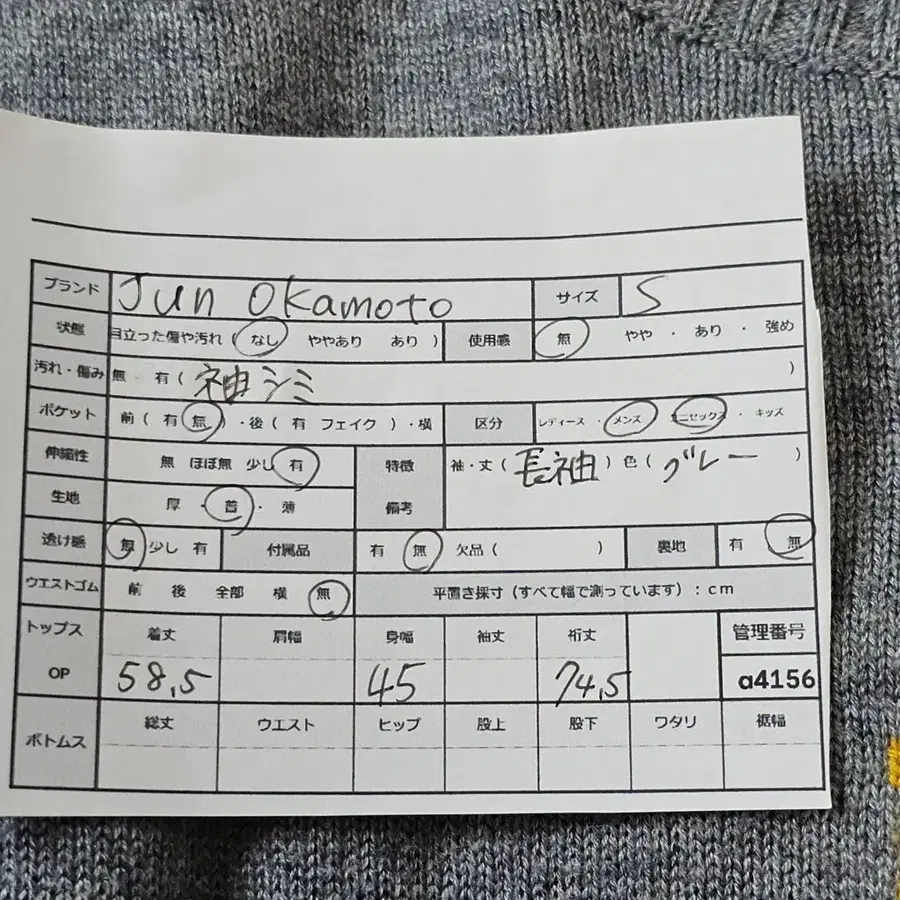 ブランド Jun Okamoto サイズ S
状態 目立った傷や汚れ ( なし ややあり あり ) 使用感 無 やや ・ あり ・ 強め
汚れ・傷み 無 ・ 有 ( 袖シミ )
ポケット 前 ( 有 無 ) ・後 ( 有 フェイク ) ・横 区分 レディース ・ メンズ ユニセックス ・ キッズ
伸縮性 無 ほぼ無 少し 有 特徴 袖・丈 ( 長袖 ) 色 ( グレー )
生地 厚 ・ 普 ・ 薄 備考
透け感 無 少し 有 付属品 有 無 欠品 ( ) 裏地 有 無
ウエストゴム 前 後 全部 横 無 平置き採寸 (すべて幅で測っています) : cm
トップス 着丈 肩幅 身幅 袖丈 裄丈 管理番号
OP 58.5 45 74.5 a4156
ボトムス 総丈 ウエスト ヒップ 股上 股下 ワタリ 裾幅